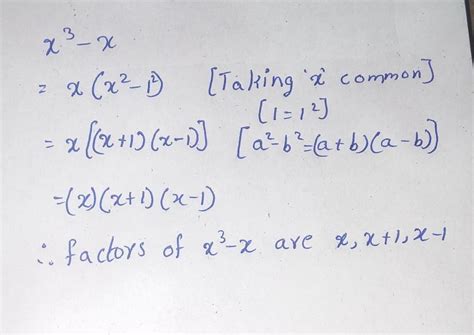 x³-x
= x(x²-1²) [Taking 'x' common]
[1=1²]
= x[(x+1)(x-1)] [a²-b²=(a+b)(a-b)]
=(x)(x+1)(x-1)
∴ factors of x³-x are x, x+1, x-1